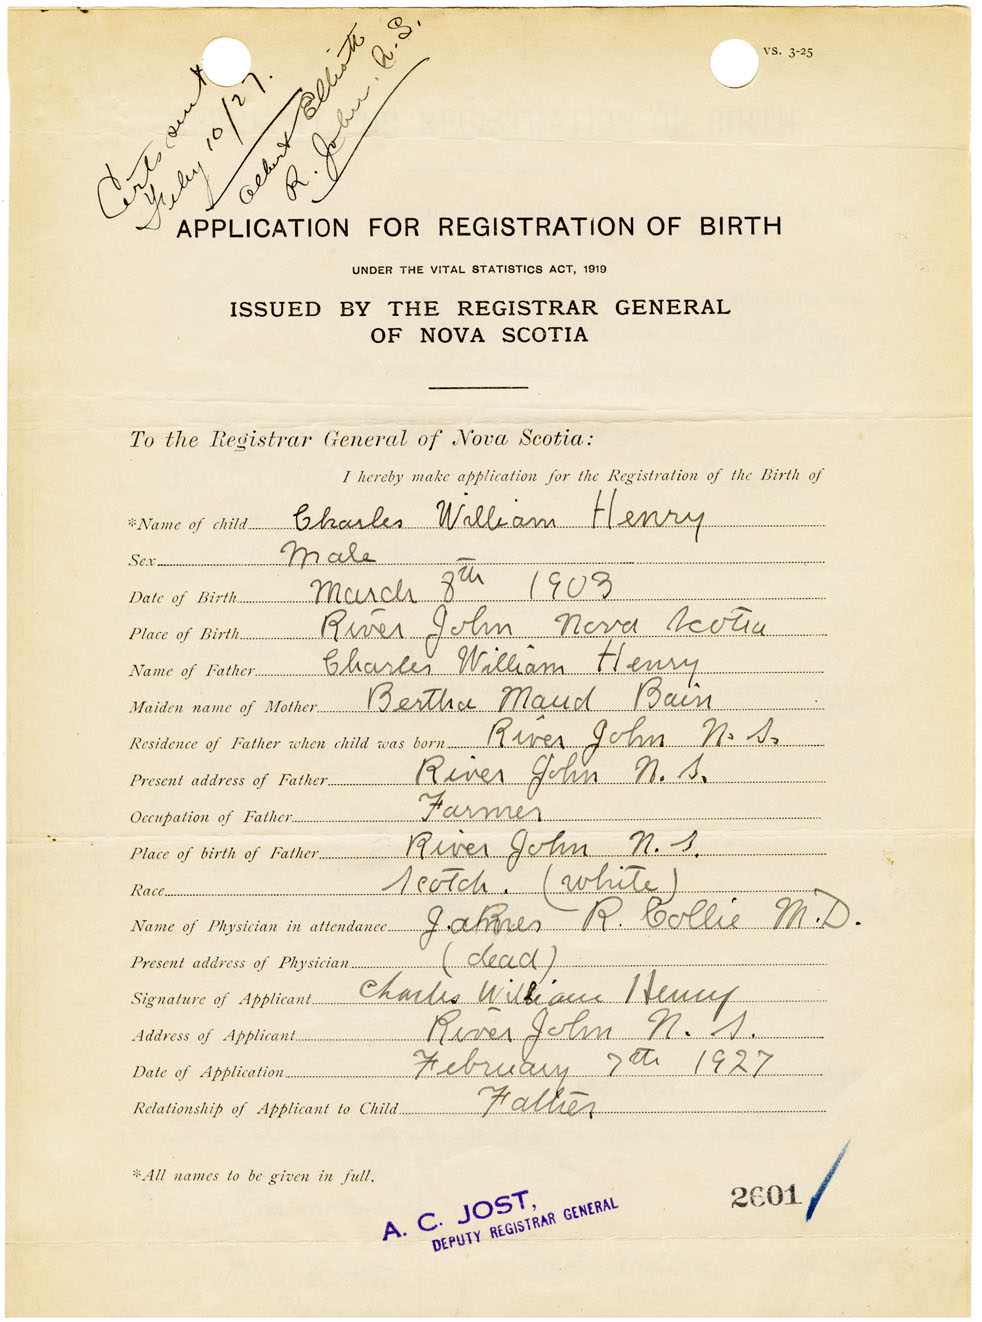 VS. 3-25
Certs sent
Feby 10/27.
Albert Elliott
R. John, N.S.
APPLICATION FOR REGISTRATION OF BIRTH
UNDER THE VITAL STATISTICS ACT, 1919
ISSUED BY THE REGISTRAR GENERAL
OF NOVA SCOTIA
To the Registrar General of Nova Scotia:
I hereby make application for the Registration of the Birth of
*Name of child Charles William Henry
Sex Male
Date of Birth March 8th 1903
Place of Birth River John Nova Scotia
Name of Father Charles William Henry
Maiden name of Mother Bertha Maud Bain
Residence of Father when child was born River John N. S.
Present address of Father River John N. S.
Occupation of Father Farmer
Place of birth of Father River John N. S.
Race Scotch. (white)
Name of Physician in attendance James R. Collie M.D.
Present address of Physician (dead)
Signature of Applicant Charles William Henry
Address of Applicant River John N. S.
Date of Application February 7th 1927
Relationship of Applicant to Child Father
*All names to be given in full.
A. C. JOST,
DEPUTY REGISTRAR GENERAL
2601